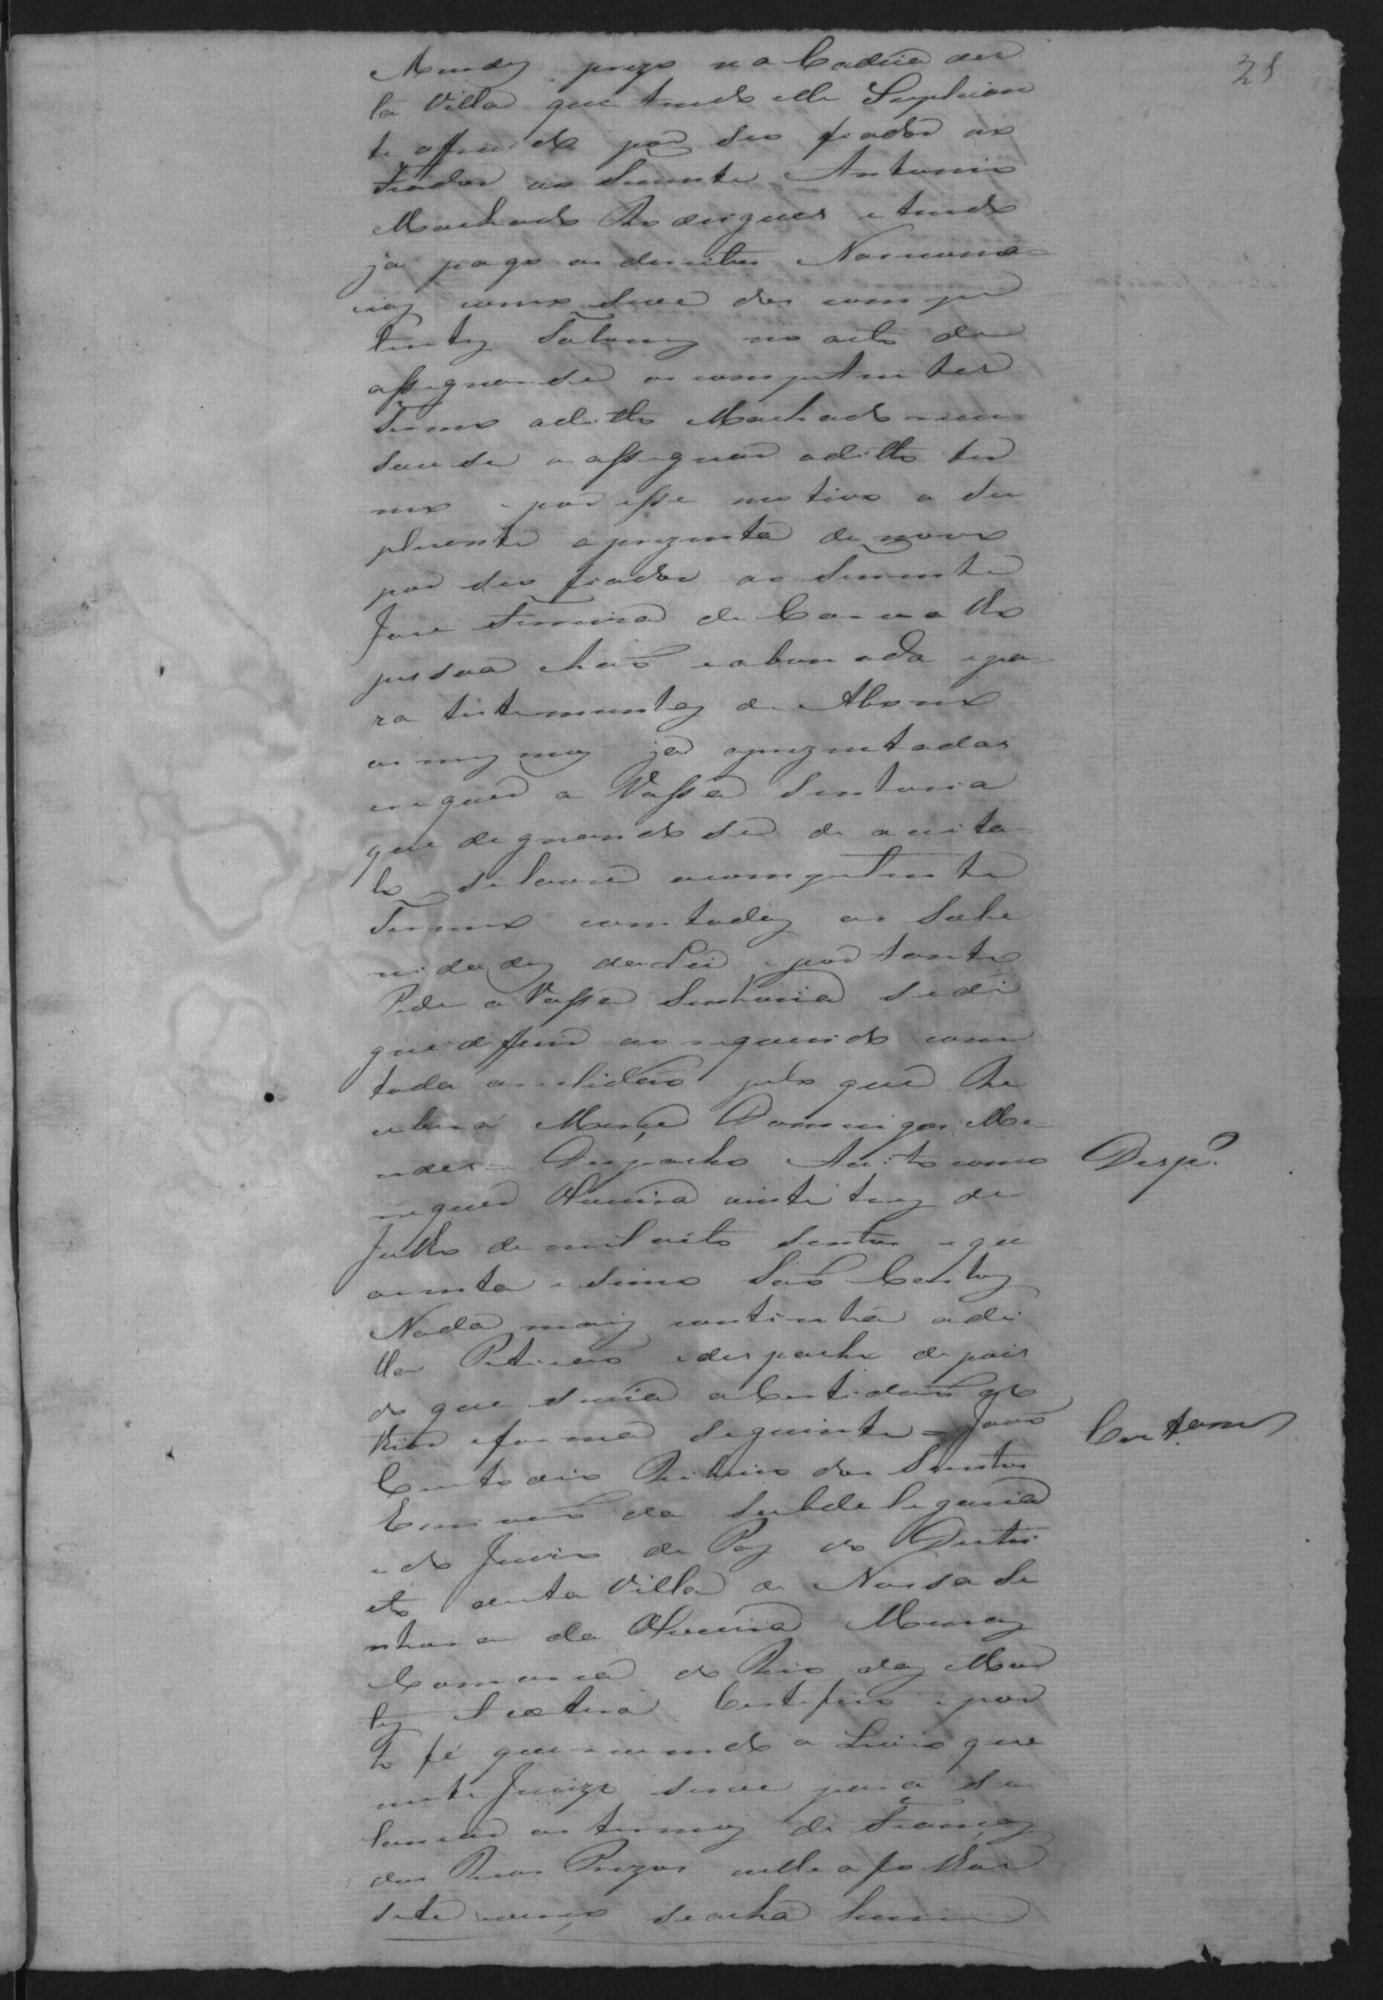 28
Mendes prezo na Cadeia des
ta Villa que tendo elle Suplican
te offrecido por seo fiador ao
fiador ao Tenente Antonio
Machado Rodrigues e tendo
ja pago os direitos Nacionaes
como dos compe
tentes Taloens no acto de
assignarse o competentes
Termo o ditto Machado recu
souse a assignar o ditto ter
mo e por esse motivo o Su
plicante aprezenta de novo
por seo fiador ao Tenente
Jose Ferreira de Carvalho
pessoa chaã e abonada e pa
ra testemunhas de Abono
as mesmas já aprezentadas
requer a Vossa Senhoria
que dignandose de aceita
lo se lavre o competente
Termo com todas as Sole
nidades da Lei e portanto
Pede a Vossa Senhoria se di
gne diferir ao requerido com
toda a pelo que Re
cebera Merce Domingos Me
ndes = Despacho Aceito como
requer Oliveira vinte tres de
Julho de mil oito centos e qua
renta e sinco São Carlos
Nada mais continha a di
tta Peticão e despacho depois
do que seria a Certidaõ do
thior e forma seguinte = Joaõ
Custodio Ribeiro dos Santos
Escrivaõ da Subdelegacia
e do Juizo de Paz do Destri
cto desta Villa de Nossa Se
nhora da Oliveira Minas
Comarca do Rio das Mor
tes Certifico e por
to fé que revendo o Livro que
neste Juizo serve para se
lancar os termos de Fiancas
dos Reos Prezos nelle a folhas
sete verso se acha hum
Desp.º
Certam